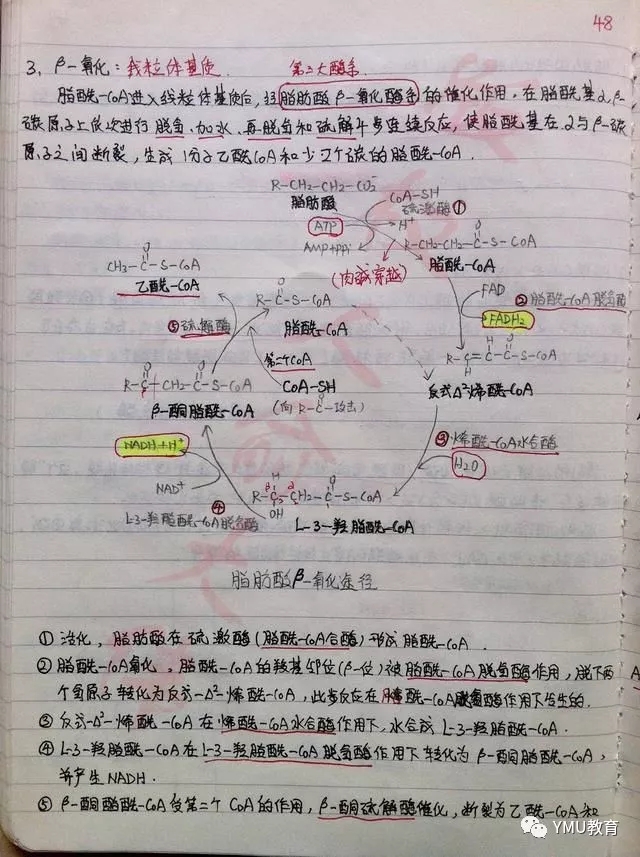 48
3、β-氧化：线粒体基质. 第二大酶系.
脂酰-CoA进入线粒体基质后,经脂肪酸β-氧化酶系的催化作用,在脂酰基α,β-
碳原子上依次进行脱氢、加水、再脱氢和硫解4步连续反应,使脂酰基在α与β-碳
原子之间断裂,生成1分子乙酰CoA和少2个碳的脂酰-CoA.
R-CH2-CH2-CO2-
脂肪酸
CoA-SH
硫激酶①
ATP
H+
AMP+PPi
(肉碱穿越)
O
R-CH2-CH2-C-S-CoA
脂酰-CoA
FAD
②脂酰-CoA脱氢酶
FADH2
O
CH3-C-S-CoA
乙酰-CoA
O
R-C-S-CoA
脂酰-CoA
⑤硫解酶
第二个CoA
CoA-SH
(向R-C-攻击)
H O
R-C=C-C-S-CoA
H
反式Δ²烯酰-CoA
O O
R-C-CH2-C-S-CoA
β-酮脂酰-CoA
③烯酰-CoA水合酶
H2O
NADH+H+
NAD+
④
L-3-羟脂酰-CoA脱氢酶
H O
R-C-CH2-C-S-CoA
OH
L-3-羟脂酰-CoA
脂肪酸β-氧化途径
①活化,脂肪酸在硫激酶(脂酰-CoA合酶)形成脂酰-CoA.
②脂酰-CoA氧化,脂酰-CoA的羰基邻位(β-位)被脂酰-CoA脱氢酶作用,脱下两
个氢原子转化为反式-Δ²-烯酰-CoA,此步反应在脂酰-CoA脱氢酶作用下发生的.
③反式-Δ²-烯酰-CoA在烯酰-CoA水合酶作用下,水合成L-3-羟脂酰-CoA.
④L-3-羟脂酰-CoA在L-3-羟脂酰-CoA脱氢酶作用下转化为β-酮脂酰-CoA,
并产生NADH.
⑤β-酮脂酰-CoA受第二个CoA的作用,β-酮硫解酶催化,断裂为乙酰-CoA和
YMU教育